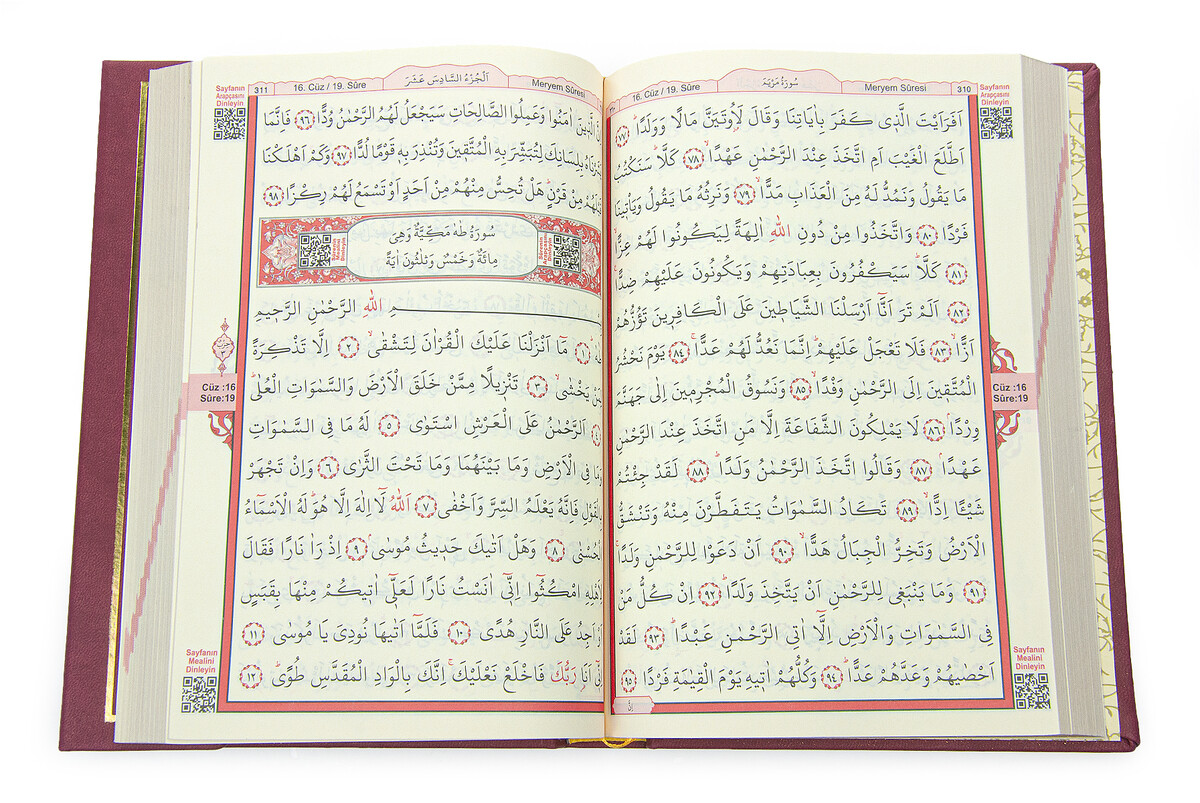 310
Meryem Sûresi
سُورَةُ مَرْيَمَ
16. Cüz / 19. Sûre
Sayfanın
Arapçasını
Dinleyin
اَفَرَاَيْتَ الَّذ۪ي كَفَرَ بِاٰيَاتِنَا وَقَالَ لَاُو۫تَيَنَّ مَالًا وَوَلَدًاۜ ﴿٧٧﴾
اَطَّلَعَ الْغَيْبَ اَمِ اتَّخَذَ عِنْدَ الرَّحْمٰنِ عَهْدًاۙ ﴿٧٨﴾ كَلَّاۜ سَنَكْتُبُ
مَا يَقُولُ وَنَمُدُّ لَهُ مِنَ الْعَذَابِ مَدًّاۙ ﴿٧٩﴾ وَنَرِثُهُ مَا يَقُولُ وَيَأْت۪ينَا
فَرْدًا ﴿٨٠﴾ وَاتَّخَذُوا مِنْ دُونِ اللّٰهِ اٰلِهَةً لِيَكُونُوا لَهُمْ عِزًّاۙ
﴿٨١﴾ كَلَّاۜ سَيَكْفُرُونَ بِعِبَادَتِهِمْ وَيَكُونُونَ عَلَيْهِمْ ضِدًّا۟
﴿٨٢﴾ اَلَمْ تَرَ اَنَّٓا اَرْسَلْنَا الشَّيَاط۪ينَ عَلَى الْكَافِر۪ينَ تَؤُزُّهُمْ
اَزًّاۙ ﴿٨٣﴾ فَلَا تَعْجَلْ عَلَيْهِمْۜ اِنَّمَا نَعُدُّ لَهُمْ عَدًّاۚ ﴿٨٤﴾ يَوْمَ نَحْشُرُ
الْمُتَّق۪ينَ اِلَى الرَّحْمٰنِ وَفْدًاۙ ﴿٨٥﴾ وَنَسُوقُ الْمُجْرِم۪ينَ اِلٰى جَهَنَّمَ
وِرْدًاۢ ﴿٨٦﴾ لَا يَمْلِكُونَ الشَّفَاعَةَ اِلَّا مَنِ اتَّخَذَ عِنْدَ الرَّحْمٰنِ
عَهْدًاۢ ﴿٨٧﴾ وَقَالُوا اتَّخَذَ الرَّحْمٰنُ وَلَدًاۜ ﴿٨٨﴾ لَقَدْ جِئْتُمْ
شَيْـًٔا اِدًّاۙ ﴿٨٩﴾ تَكَادُ السَّمٰوَاتُ يَتَفَطَّرْنَ مِنْهُ وَتَنْشَقُّ
الْاَرْضُ وَتَخِرُّ الْجِبَالُ هَدًّاۙ ﴿٩٠﴾ اَنْ دَعَوْا لِلرَّحْمٰنِ وَلَدًاۚ
﴿٩١﴾ وَمَا يَنْبَغ۪ي لِلرَّحْمٰنِ اَنْ يَتَّخِذَ وَلَدًاۜ ﴿٩٢﴾ اِنْ كُلُّ مَنْ
فِي السَّمٰوَاتِ وَالْاَرْضِ اِلَّٓا اٰتِي الرَّحْمٰنِ عَبْدًاۜ ﴿٩٣﴾ لَقَدْ
اَحْصٰيهُمْ وَعَدَّهُمْ عَدًّاۜ ﴿٩٤﴾ وَكُلُّهُمْ اٰت۪يهِ يَوْمَ الْقِيٰمَةِ فَرْدًا ﴿٩٥﴾
اِنَّ
Cüz :16
Sûre:19
Sayfanın
Mealini
Dinleyin
Meryem Sûresi
اَلْجُزْءُ السَّادِسَ عَشَرَ
16. Cüz / 19. Sûre
311
Sayfanın
Arapçasını
Dinleyin
اِنَّ الَّذ۪ينَ اٰمَنُوا وَعَمِلُوا الصَّالِحَاتِ سَيَجْعَلُ لَهُمُ الرَّحْمٰنُ وُدًّا ﴿٩٦﴾ فَاِنَّمَا
يَسَّرْنَاهُ بِلِسَانِكَ لِتُبَشِّرَ بِهِ الْمُتَّق۪ينَ وَتُنْذِرَ بِه۪ قَوْمًا لُدًّا ﴿٩٧﴾ وَكَمْ اَهْلَكْنَا
قَبْلَهُمْ مِنْ قَرْنٍۜ هَلْ تُحِسُّ مِنْهُمْ مِنْ اَحَدٍ اَوْ تَسْمَعُ لَهُمْ رِكْزًا ﴿٩٨﴾
سُورَةُ طٰهٰ مَكِّيَّةٌ وَهِيَ
مِائَةٌ وَخَمْسٌ وَثَلٰثُونَ اٰيَةً
Sûrenin
Arapçasını
Dinleyin
Sûrenin
Mealini
Dinleyin
بِسْمِ اللّٰهِ الرَّحْمٰنِ الرَّح۪يمِ
طٰهٰۜ ﴿١﴾ مَٓا اَنْزَلْنَا عَلَيْكَ الْقُرْاٰنَ لِتَشْقٰىۙ ﴿٢﴾ اِلَّا تَذْكِرَةً
لِمَنْ يَخْشٰىۙ ﴿٣﴾ تَنْز۪يلًا مِمَّنْ خَلَقَ الْاَرْضَ وَالسَّمٰوَاتِ الْعُلٰىۜ
﴿٤﴾ اَلرَّحْمٰنُ عَلَى الْعَرْشِ اسْتَوٰى ﴿٥﴾ لَهُ مَا فِي السَّمٰوَاتِ
وَمَا فِي الْاَرْضِ وَمَا بَيْنَهُمَا وَمَا تَحْتَ الثَّرٰى ﴿٦﴾ وَاِنْ تَجْهَرْ
بِالْقَوْلِ فَاِنَّهُ يَعْلَمُ السِّرَّ وَاَخْفٰى ﴿٧﴾ اَللّٰهُ لَٓا اِلٰهَ اِلَّا هُوَۜ لَهُ الْاَسْمَٓاءُ
الْحُسْنٰى ﴿٨﴾ وَهَلْ اَتٰيكَ حَد۪يثُ مُوسٰىۢ ﴿٩﴾ اِذْ رَاٰ نَارًا فَقَالَ
لِاَهْلِهِ امْكُثُٓوا اِنّ۪ٓي اٰنَسْتُ نَارًا لَعَلّ۪ٓي اٰت۪يكُمْ مِنْهَا بِقَبَسٍ
اَوْ اَجِدُ عَلَى النَّارِ هُدًى ﴿١٠﴾ فَلَمَّٓا اَتٰيهَا نُودِيَ يَا مُوسٰى ﴿١١﴾
اِنّ۪ٓي اَنَا۬ رَبُّكَ فَاخْلَعْ نَعْلَيْكَۚ اِنَّكَ بِالْوَادِ الْمُقَدَّسِ طُوًىۜ ﴿١٢﴾
حِزْب
٣
Cüz :16
Sûre:19
Sayfanın
Mealini
Dinleyin